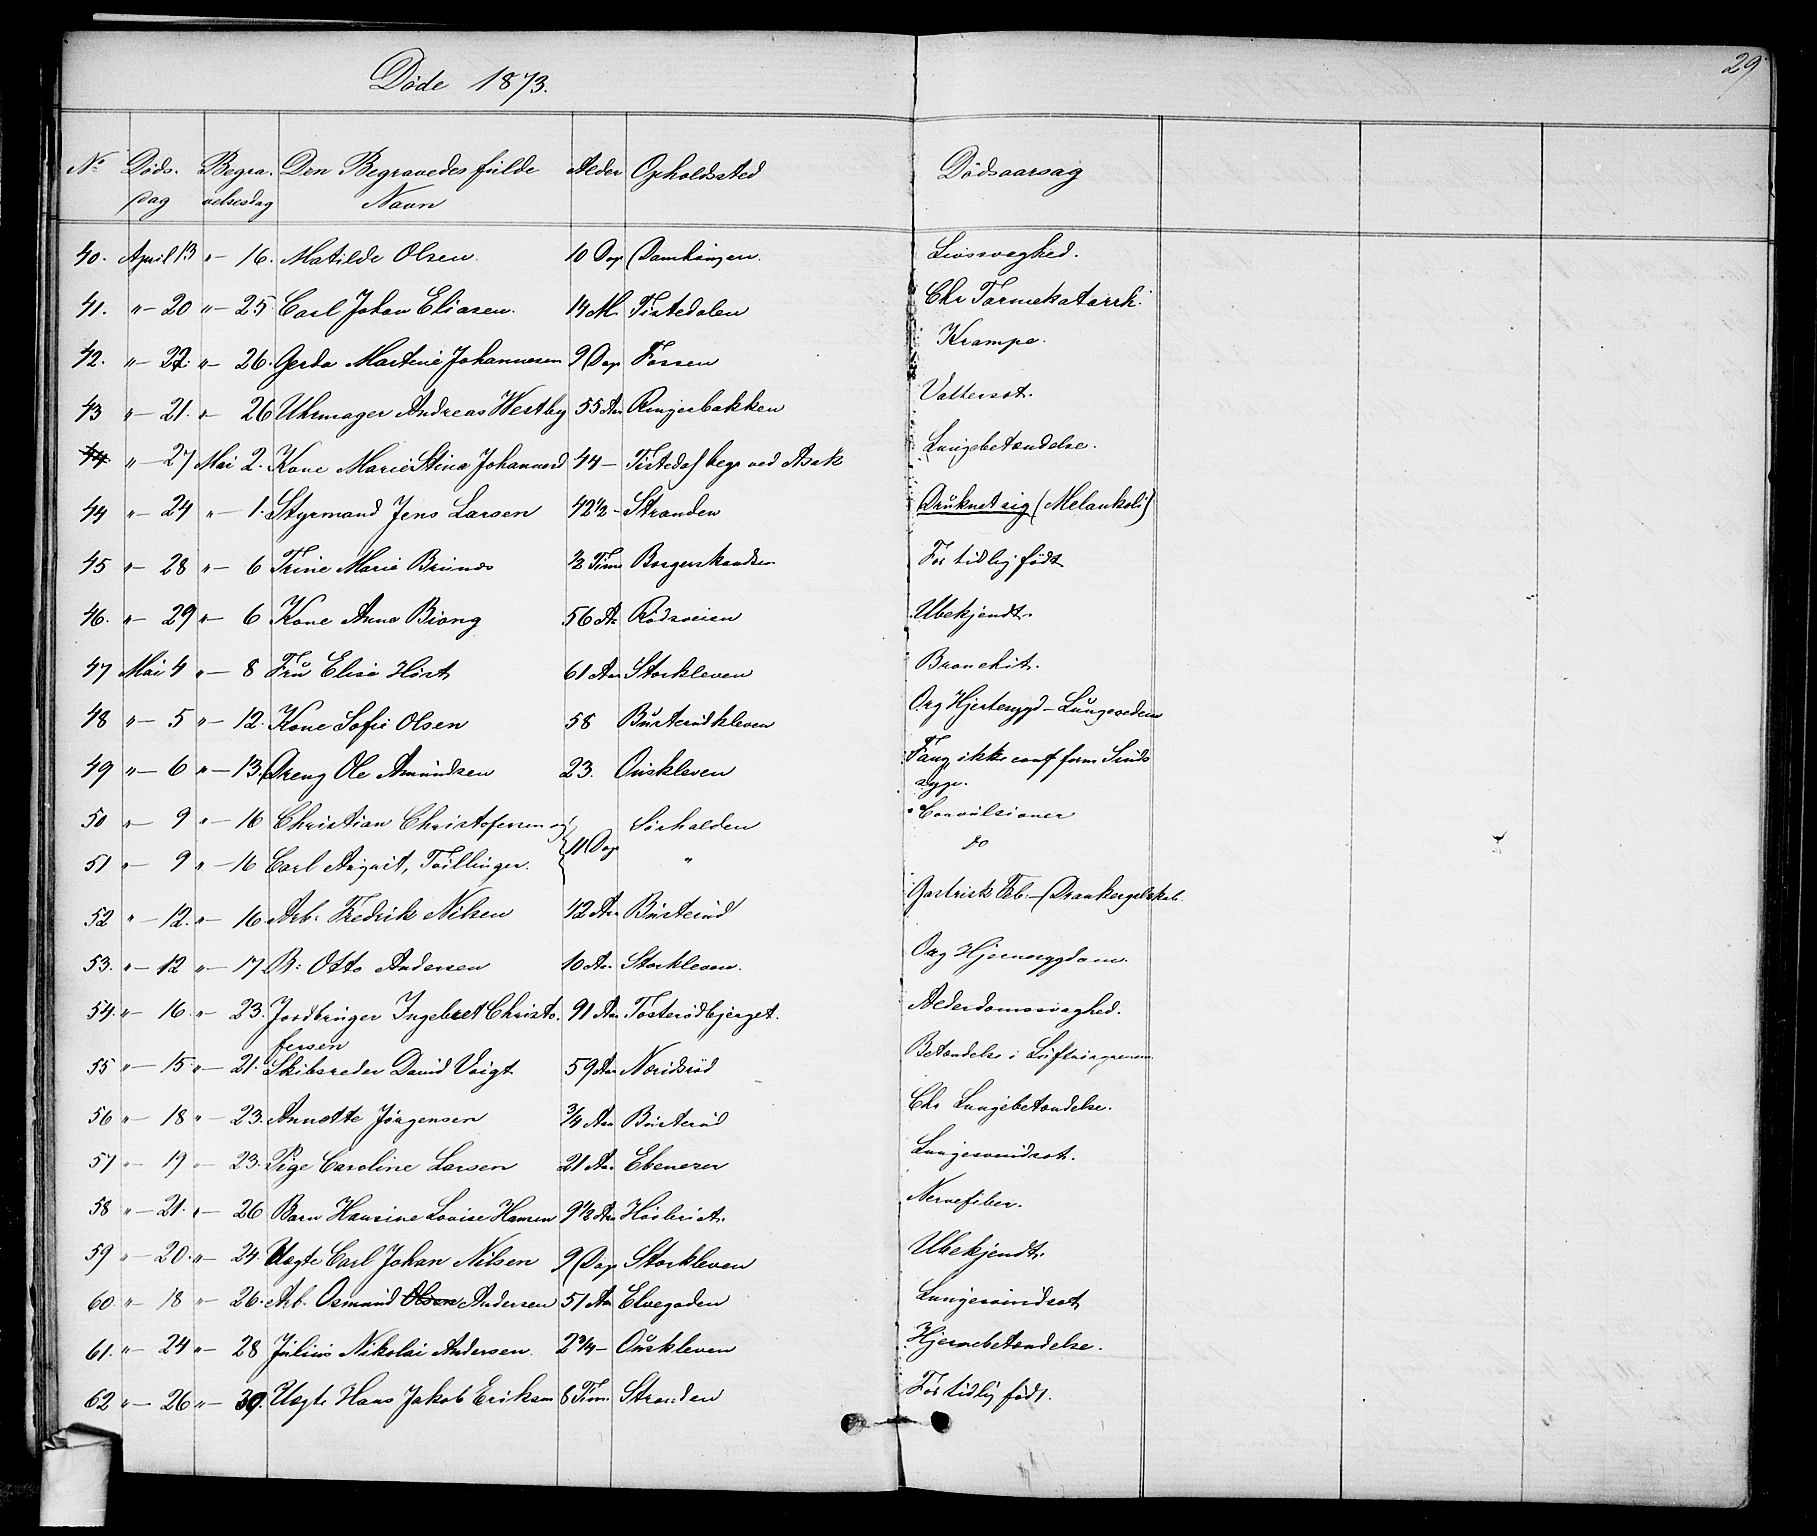 29
Døde 1873.
No Døds- dag Begra- velsesdag Den Begravedes fulde Navn Alder Opholdsted Dødsaarsag
40. April 13 " — 16. Matilde Olsen 10 Dage Damhaugen. Livssvaghed.
41. " — 20 " — 25 Carl Johan Eliasen. 14 M. Tistedalen Chr Tarmekatarrh.
42. " — 22. " — 26. Gerda Martine Johannesen 9 Dage Fossen Krampe.
43 " — 21. " 26 Uhrmager Andreas Westby 55 Aar Ringerbakken Vattersot.
44 " — 27 Mai 2. Kone Marie Stina Johannesd 44 — Tistedal begr ved Asak Lungebetændelse.
44 " — 24 " — 1. Styrmand Jens Larsen 42 1/2 — Stranden Druknet sig (Melankoli)
45 " — 28 " — 6 Trine Marie Brunæs 1/2 Time Borgerskandsen For tidlig født
46. " — 29 " — 6 Kone Anna Biong 56 Aar Rødsveien Ubekjendt.
47 Mai 4 " — 8 Frú Elise Høst 61 Aar Storkleven Bronchit.
48 " — 5 " — 12. Kone Sofie Olsen 58 Bústerúdkleven Org Hjertesygd — Lúngeødem
49 " — 6 " — 13. Dreng Ole Amúndsen 23. Oúskleven Fang, ikke conf form Sinds
syge.
50 " — 9 " — 16 Christian Christofersen og } 11 Dage Sørhalden Convúlsioner
51 " — 9 " — 16 Carl Aúgúst, Tvillinger. " do
52 " — 12. " — 16 Arb. Fredrik Nilsen 42 Aar Bústerúd Gastrisk Feb. — Drankergalskab.
53. " — 12 " — 17 B: Otto Andersen 10 Aar Storkleven. Org Hjernesygdom.
54. " — 16. " — 23. Jordbrúger Ingebret Christo- 91 Aar Tosterødbjerget. Alderdomssvaghed.
fersen
55 " — 15 " — 21. Skibsreder David Voigt 59 Aar Næridsrød Betændelse i Lúftrørgrenene
56 " — 18 " — 23. Annette Jørgensen 3/4 Aar Bústerúd Chr Lungebetændelse.
57 " — 19 " — 23. Pige Caroline Larsen 21 Aar Ebenezer Lungesvindsot.
58 " — 21. " — 26 Barn Hansine Lovise Hansen 9 1/2 Aar Høsbriet. Nervefeber.
59 " — 20. " — 24 Uægte Carl Johan Nilsen 9 Dage Storkleven Ubekjendt.
60 " — 18 " — 26. Arb. Osmund Olsen Andersen 51 Aar Elvegaden Lungesvindsot
61. " — 24 " — 28 Július Nikolai Andersen. 2 3/4 — Oúskleven Hjernebetændelse.
62 " — 26 " — 30. Uægte Hans Jakob Eriksen 8 Time Stranden For tidlig født.